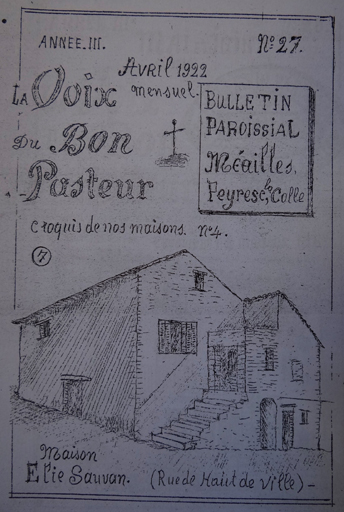 ANNEE.III.
No 27.
Avril 1922
mensuel.
LA Voix
Du Bon
Pasteur
BULLETIN
PAROISSIAL
Méailles,
Peyresc, la Colle
Croquis de nos maisons. No 4.
7
Maison
Elie Sauvan.
(Rue de Haut de Ville) -